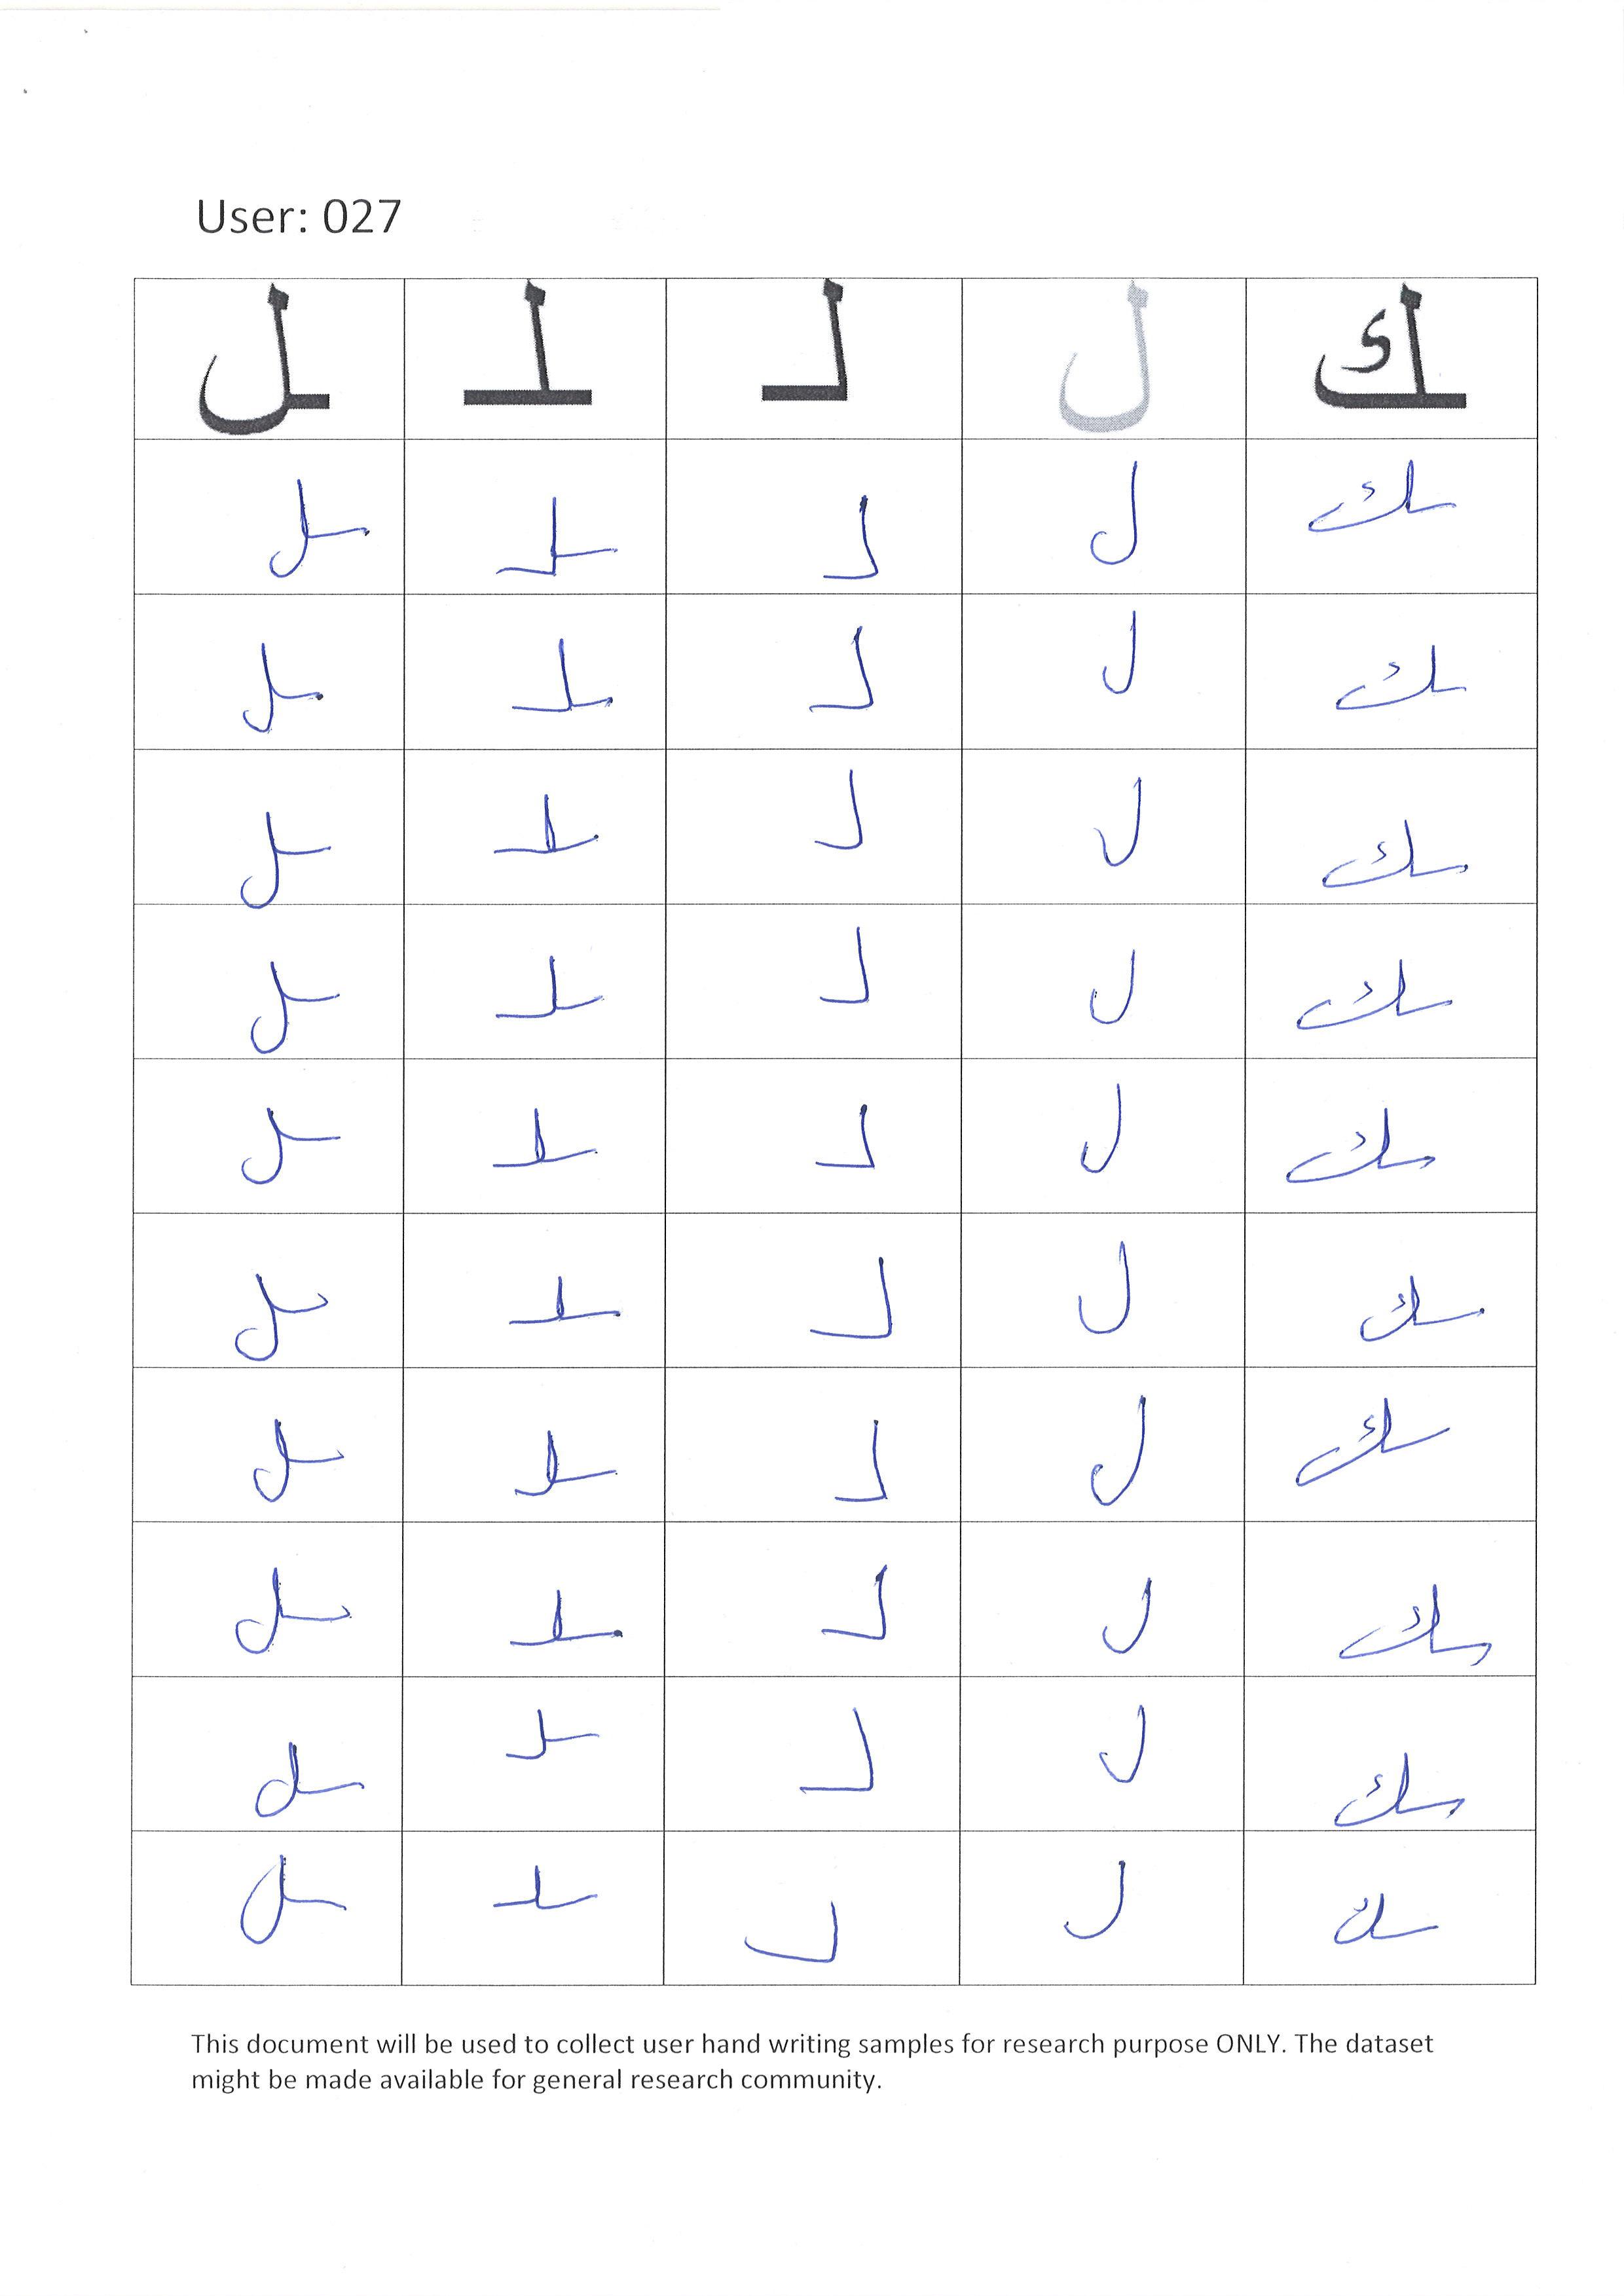 User: 027
ـل ـلـ لـ ل ـك
ـل ـلـ لـ ل ـك
ـل ـلـ لـ ل ـك
ـل ـلـ لـ ل ـك
ـل ـلـ لـ ل ـك
ـل ـلـ لـ ل ـك
ـل ـلـ لـ ل ـك
ـل ـلـ لـ ل ـك
ـل ـلـ لـ ل ـك
ـل ـلـ لـ ل ـك
ـل ـلـ لـ ل ـك
This document will be used to collect user hand writing samples for research purpose ONLY. The dataset
might be made available for general research community.